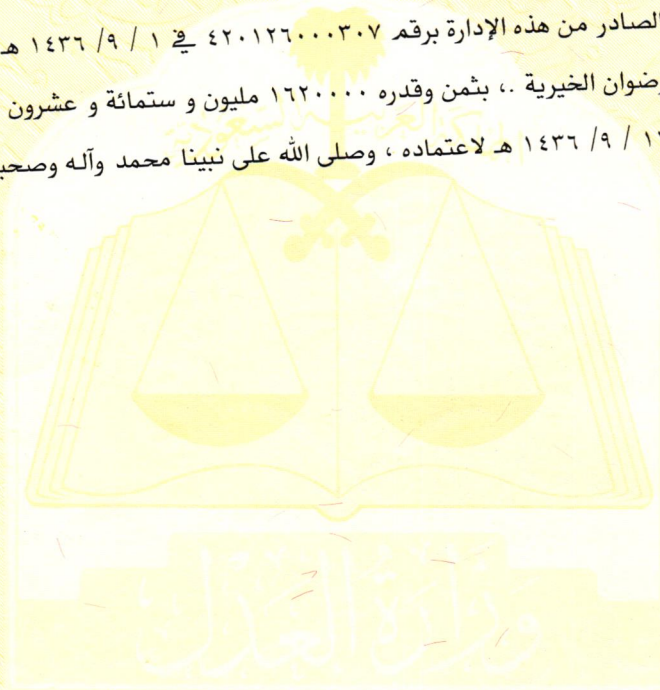 الصادر من هذه الإدارة برقم ٤٢٠١٢٦٠٠٠٣٠٧ في ١ / ٩ / ١٤٣٦ هـ
رضوان الخيرية .، بثمن وقدره ١٦٢٠٠٠٠ مليون و ستمائة و عشرون
/ ٩ / ١٤٣٦ هـ لاعتماده ، وصلى الله على نبينا محمد وآله وصحبه
المملكة العربية السعودية
وزارة العدل